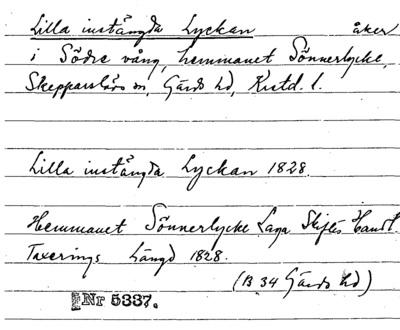 Lilla instängda Lyckan åker
i Södre vång, hemmanet Sönnerlycke,
Skepparslövs sn, Gärds hd, Kristd. l.
Lilla instängda Lyckan 1828.
Hemmanet Sönnerlycke Laga Skiftes Handl.
Taxerings längd 1828.
(B 34 Gärds hd)
Nr 5337.